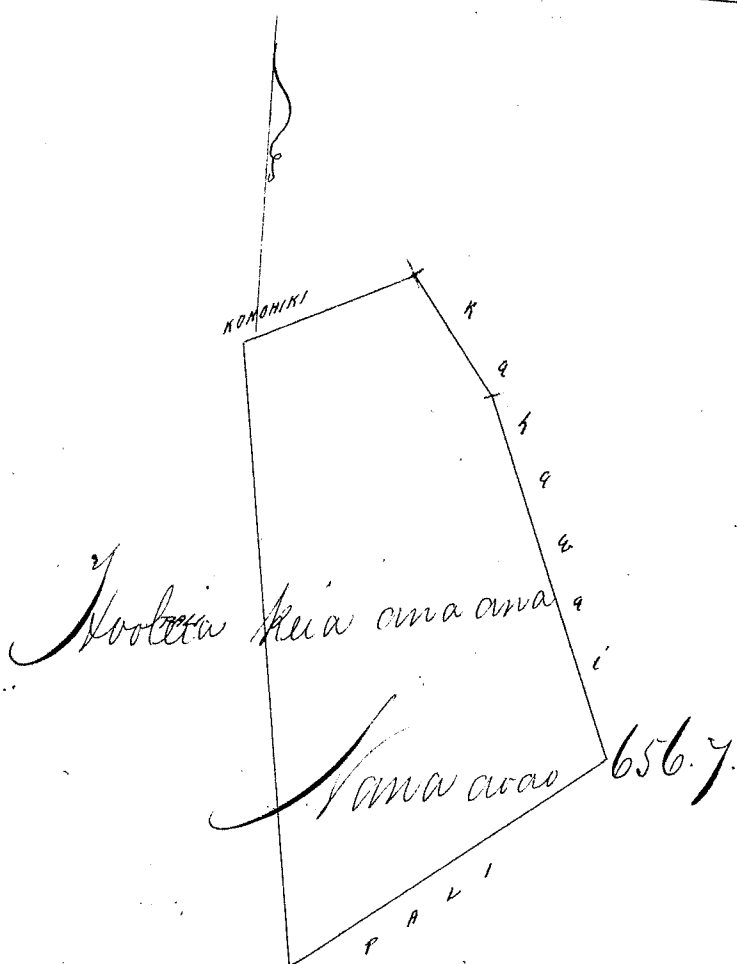 KONOHIKI
Kahawai
Hooleia keia ana ana
Nana aoao 656. 7.
PALI